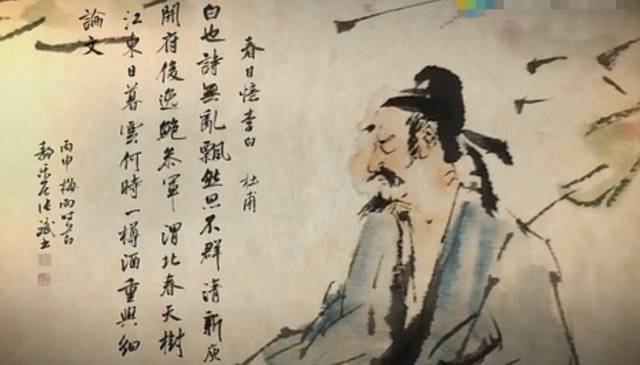 春日憶李白 杜甫
白也詩無亂飄然思不群清新庾
開府後逸鮑參軍 渭北春天樹
江東日暮雲何時一樽酒重與細
論文
丙申梅雨時節